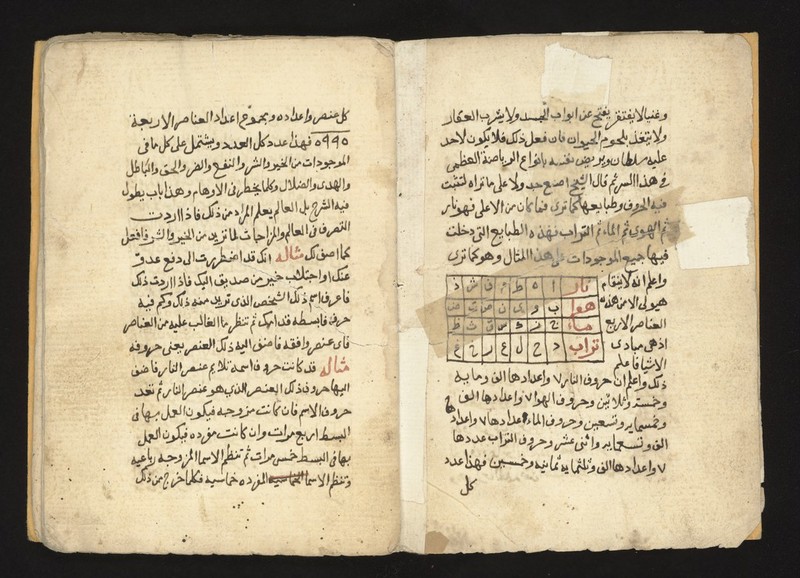 وغنيا لا يفتقر يفتح عن ابواب الجسد ولا يشرب العقار
ولا يتغذ بلحوم الحيوان فان فعل ذلك فلا يكون لاحد
عليه سلطان ويروض نفسه بانواع الرياضة العظمى
في هذا السر ثم قال الشيخ اصنع جدولا على ما تراه لتثبت
فيه الحروف وطبايعها كما ترى فما كان من الاعلى فهو نار
ثم الهوى ثم الماء ثم التراب فهذه الطبايع التي دخلت
فيها جميع الموجودات على هذا المثال وهو كما ترى
واعلم انه لا ينتقام
هيولى الا من هذه
العناصر الاربع
اذ هي مبادى
الاشيا فاعلم
نار ا ه ط م ف ش ذ
هوا ب و ي ن ص ت ض
ماء ج ز ك س ق ث ظ
تراب د ح ل ع ر خ غ
ذلك واعلم ان حروف النار ٧ واعدادها الف ومايه
وخمسة وثلاثين وحروف الهوا ٧ واعدادها الف
وخمسمايه وتسعين وحروف الماء ٧ اعدادها واعداد
الف وتسعمايه واثنى عشر وحروف التراب عددها
٧ واعدادها الف وثلثمايه ثمانيه وخمسين فهذا عدد
كل
كل عنصر واعداده ومجموع اعداد العناصر الاربعة
٥٩٩٥ فهذا عدد كل العدد ويشتمل على كل ما في
الموجودات من الخير والشر والنفع والضر والحق والباطل
والهدى والضلال وكلما يخطر في الاوهام وهذا باب يطول
فيه الشرح بل العالم يعلم المراد من ذلك فاذا اردت
التصرف في العالم والمزاجات لما تريد من الخير والشر فافعل
كما اصف لك مثاله انك قد اضطررت الى دفع عدو
عنك او اجتلاب خير من صديق اليك فاذا اردت ذلك
فاعرف اسم ذلك الشخص الذي تريد منه ذلك وكم فيه
حرف فابسطه قدامك ثم تنظر ما الغالب عليه من العناصر
فاي عنصر وافقه فاضف اليه ذلك العنصر يعني حروفه
مثاله قد كانت حروف اسمه تلايم عنصر النار فاضف
اليها حروف ذلك العنصر الذي هو عنصر النار ثم تعد
حروف الاسم فان كانت مزوجه فيكون العمل بها في
البسط اربع مرات وان كانت مفرده فيكون العمل
بها في البسط خمس مرات ثم تنظم الاسما المزوجه رباعيه
وتنظم الاسما المفرده خماسيه فكلما خرج من ذلك